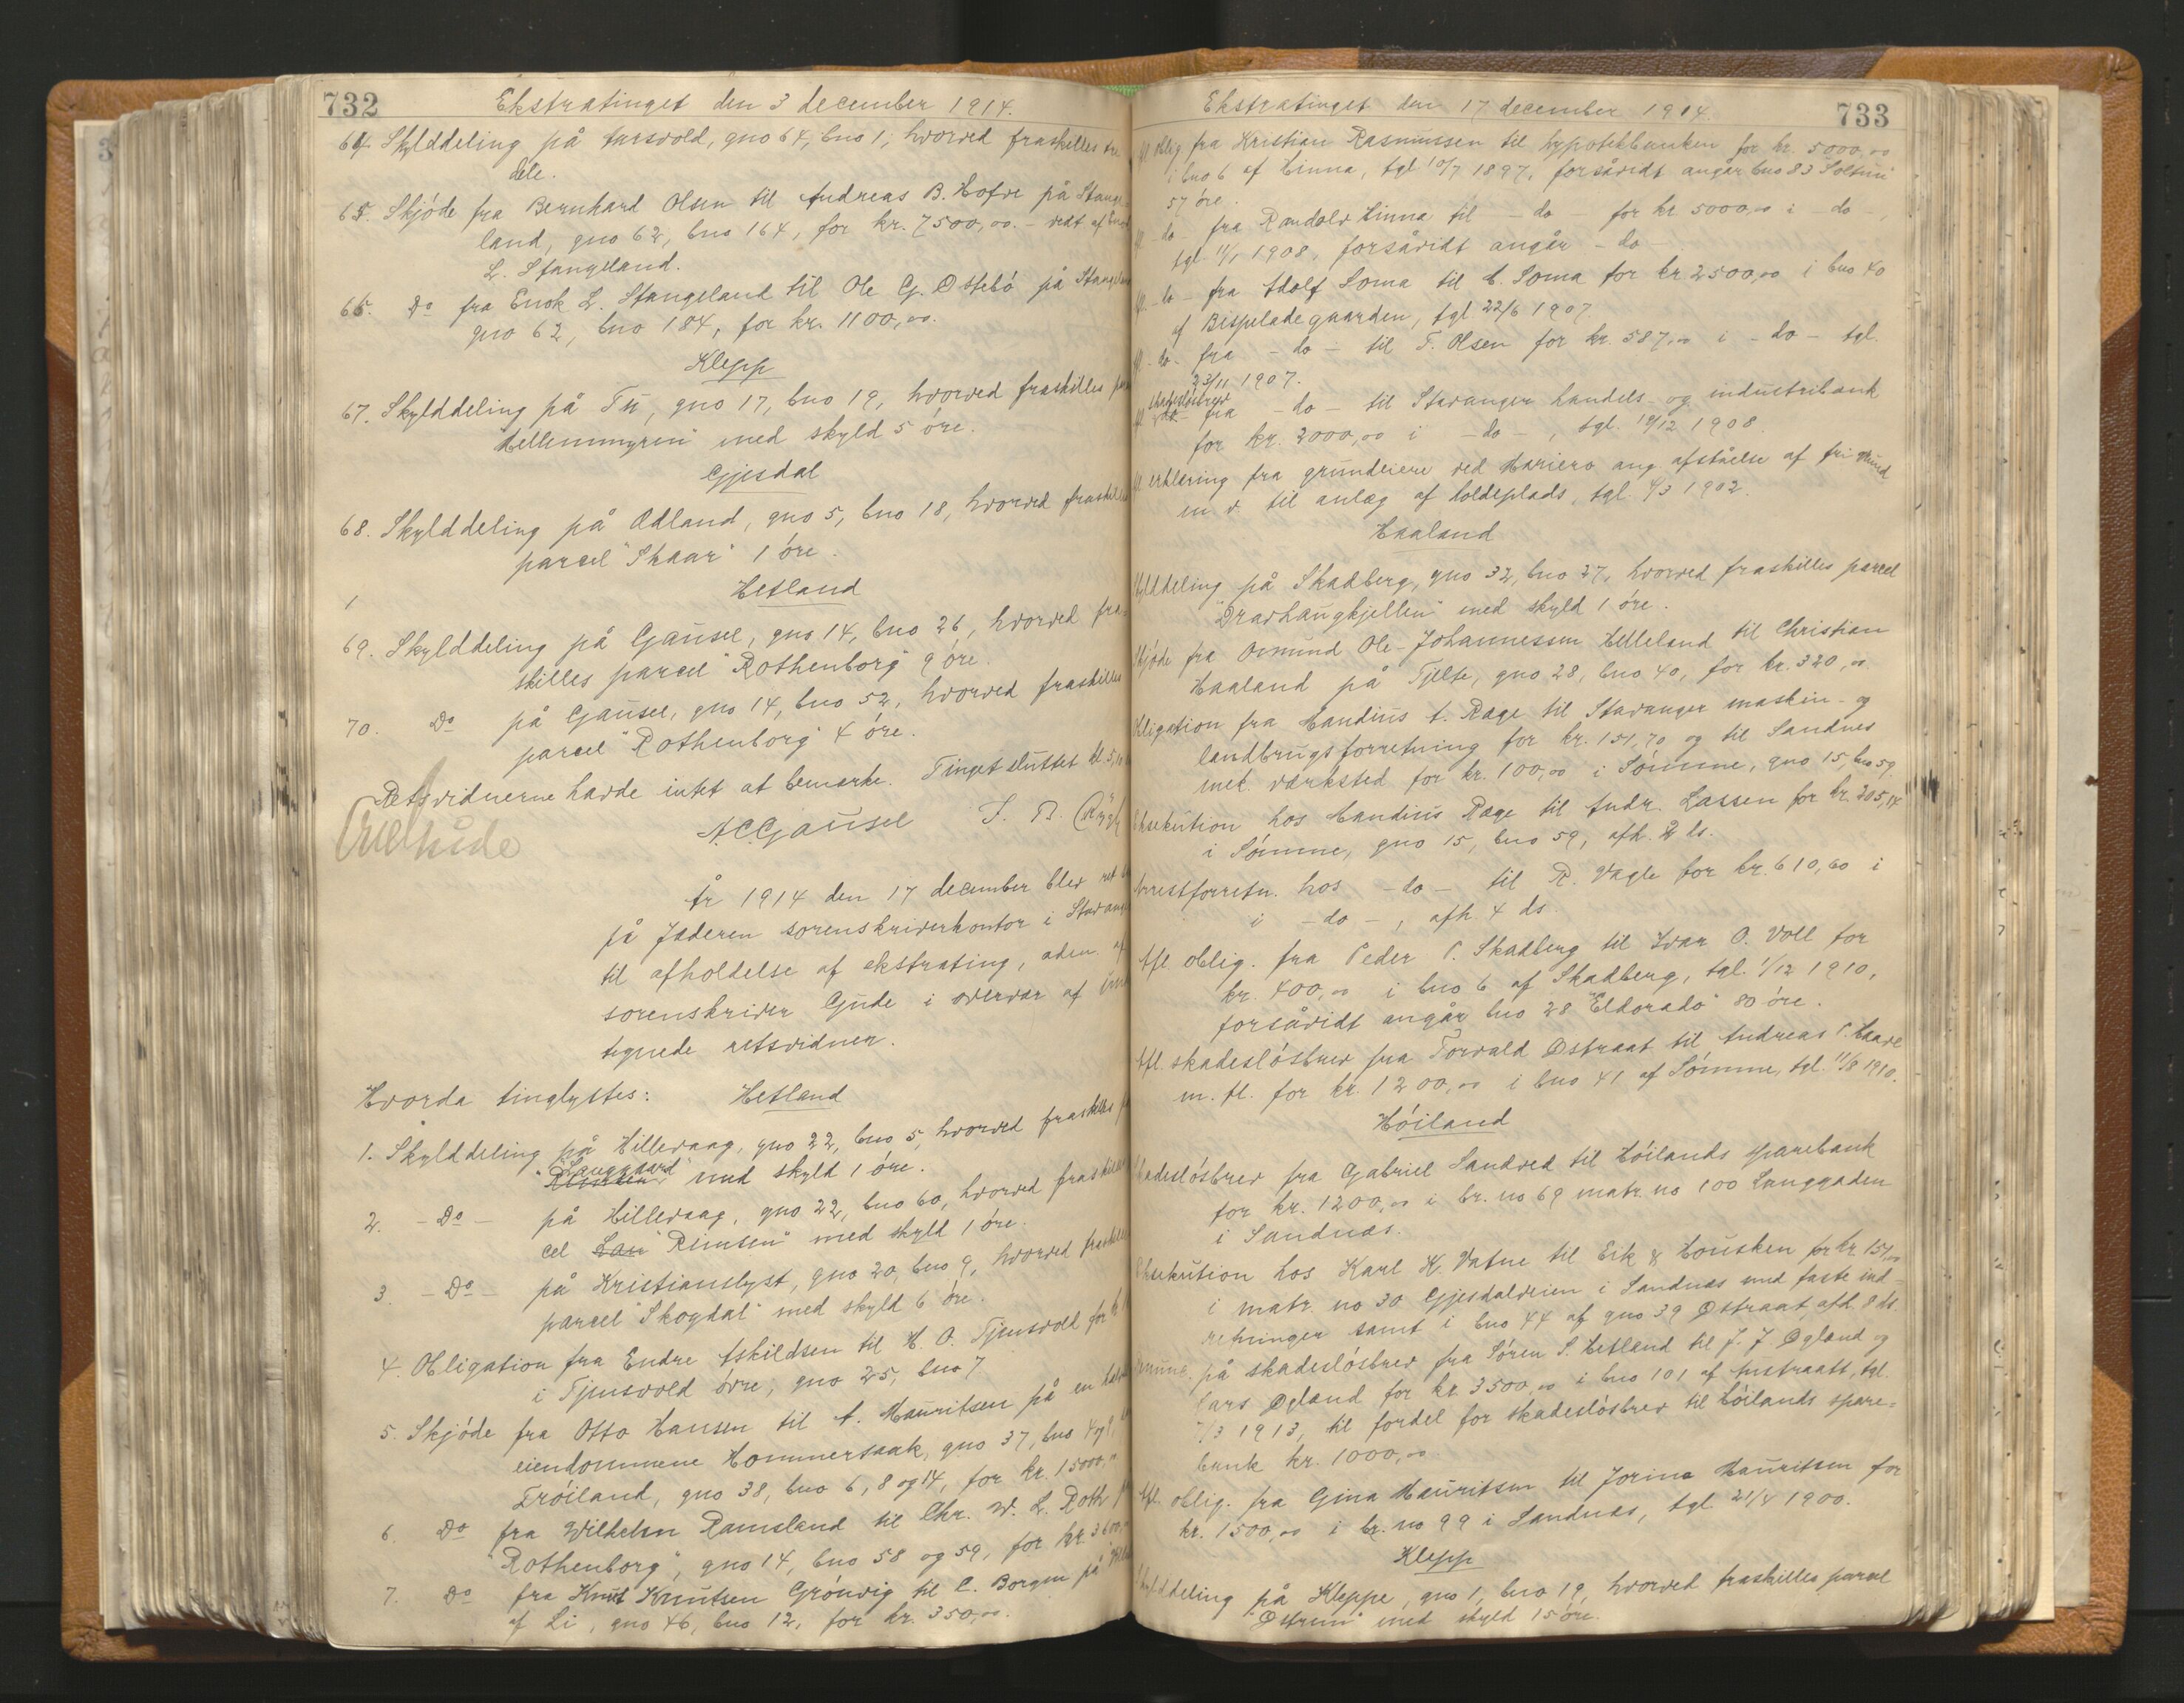 732
Ekstratinget den 3 december 1914.
64. Skylddeling på Aarsvold, gno 64, bno 1, hvorved fraskilles
dele.
65. Skjöde fra Bernhard Olsen til Andreas B. Hofve på Stange-
land, gno 62, bno 164, for kr. 7500,00. - vedt. af
L. Stangeland.
66. Do fra Enok L. Stangeland til Ole G. Østebö på
gno 62, bno 184, for kr. 1100,00.
Klepp
67. Skylddeling på Tu, gno 17, bno 19, hvorved fraskilles
"Hellemmyren" med skyld 5 öre.
Gjesdal
68. Skylddeling på Ødland, gno 5, bno 18, hvorved
parcel "Skaar" 1 öre.
Hetland
69. Skylddeling på Gausel, gno 14, bno 26, hvorved fra-
skilles parcel "Rothenborg" 9 öre.
70. Do på Gausel, gno 14, bno 52, hvorved fraskilles
parcel "Rothenborg" 4 öre.
Retsvidnerne havde intet at bemærke. Tinget sluttet kl. 5,
A. C. Gausel S. B.
År 1914 den 17 december blev ret
på Jæderen sorenskriverkontor i
til afholdelse af ekstrating, adm. af
sorenskriver Gude i overvær af
tegnede retsvidner.
Hvorda tinglystes: Hetland
1. Skylddeling på Hillevaag, gno 22, bno 5, hvorved fraskilles
"Langgaard" med skyld 1 öre.
2. - Do - på Hillevaag, gno 22, bno 60, hvorved
cel Lan "Rimsen" med skyld 1 öre.
3. - Do - på Kristianslyst, gno 20, bno 9, hvorved
parcel "Skogdal" med skyld 6 öre.
4. Obligation fra Endre Askildsen til H. O. Tjensvold for
i Tjensvold övre, gno 25, bno 7
5. Skjöde fra Otto Hansen til A. Mauritsen på en
eiendommene Hommersaak, gno 37, bno 4 og
Fröiland, gno 38, bno 6, 8 og 14, for kr. 15000,00
6. Do fra Wilhelm Ramsland til Chr. W. L. Roth
"Rothenborg", gno 14, bno 58 og 59, for kr. 3600,
7. Do fra Knut Knutsen Grönvig til C. Borgen på
af Li, gno 46, bno 12, for kr. 350,00.
Ekstratinget den 17 december 1914.
733
oblig fra Kristian Rasmussen til hypotekbanken for kr. 5000,00
i bno 6 af Hinna, tgl. 10/7 1897, forsåvidt angår bno 83 "Soltun"
57 öre.
- do - fra Randolv Hinna til - do - for kr 5000,00 i - do -,
tgl. 11/1 1908, forsåvidt angår - do -
- do - fra Adolf Soma til C. Soma for kr 2500,00 i bno 40
af Bispeladegaarden, tgl 22/6 1907.
- do - fra - do - til T. Olsen for kr. 587,00 i - do - tgl.
23/11 1907.
skadeslösbrev
fra - do - til Stavanger handels- og industribank
for kr. 2000,00 i - do -, tgl. 19/12 1908.
erklæring fra grundeiere ved Mariero ang. afståelse af fri grund
m. v. til anlæg af holdeplads, tgl. 4/3 1902.
Haaland
Skylddeling på Skadberg, gno 32, bno 27, hvorved fraskilles parcel
"Dravhaugkjellen" med skyld 1 öre.
Skjöde fra Osmund Ole-Johannessen Helleland til Christian
Haaland på Tjelte, gno 28, bno 40, for kr. 320,00.
Obligation fra Mandius A. Rage til Stavanger maskin- og
landbrugsforretning for kr. 151,70 og til Sandnes
mek. værksted for kr. 100,00 i Sömme, gno 15, bno 59.
Eksekution hos Mandius Rage til Andr. Lassen for kr. 205,14
i Sömme, gno 15, bno 59, afh. 2 ds.
Arrestforretn. hos - do - til R. Vagle for kr. 610,60 i
i - do -, afh. 4 ds.
Afl. oblig. fra Peder P. Skadberg til Ivar O. Voll for
kr. 400,00 i bno 6 af Skadberg, tgl. 1/12 1910,
forsåvidt angår bno 28 "Eldorado" 80 öre.
Afl. skadeslösbrev fra Torvald Østraat til Andreas P. Haave
m. fl. for kr. 1200,00 i bno 41 af Sömme, tgl. 11/8 1910.
Höiland
Skadeslösbrev fra Gabriel Sandved til Höilands sparebank
for kr. 1200,00 i br. no 69 matr. no 100 Langgaden
i Sandnæs.
Eksekution hos Karl K. Vatne til Eik & Housken for kr. 151,00
i matr. no 30 Gjesdalveien i Sandnæs med faste ind-
retninger samt i bno 44 af gno 39 Østraat, afh. 8 ds.
på skadeslösbrev fra Sören S. Hetland til J. J. Øgland og
Lars Øgland for kr. 3500,00 i bno 101 af Austraatt, tgl.
7/3 1913, til fordel for skadeslösbrev til Höilands spare-
bank kr. 1000,00.
Afl. oblig. fra Gina Mauritsen til Jorina Mauritsen for
kr. 1500,00 i br. no 99 i Sandnæs, tgl 21/8 1900.
Klepp
Skylddeling på Kleppe, gno 1, bno 19, hvorved fraskilles parcel
"Østrem" med skyld 15 öre.